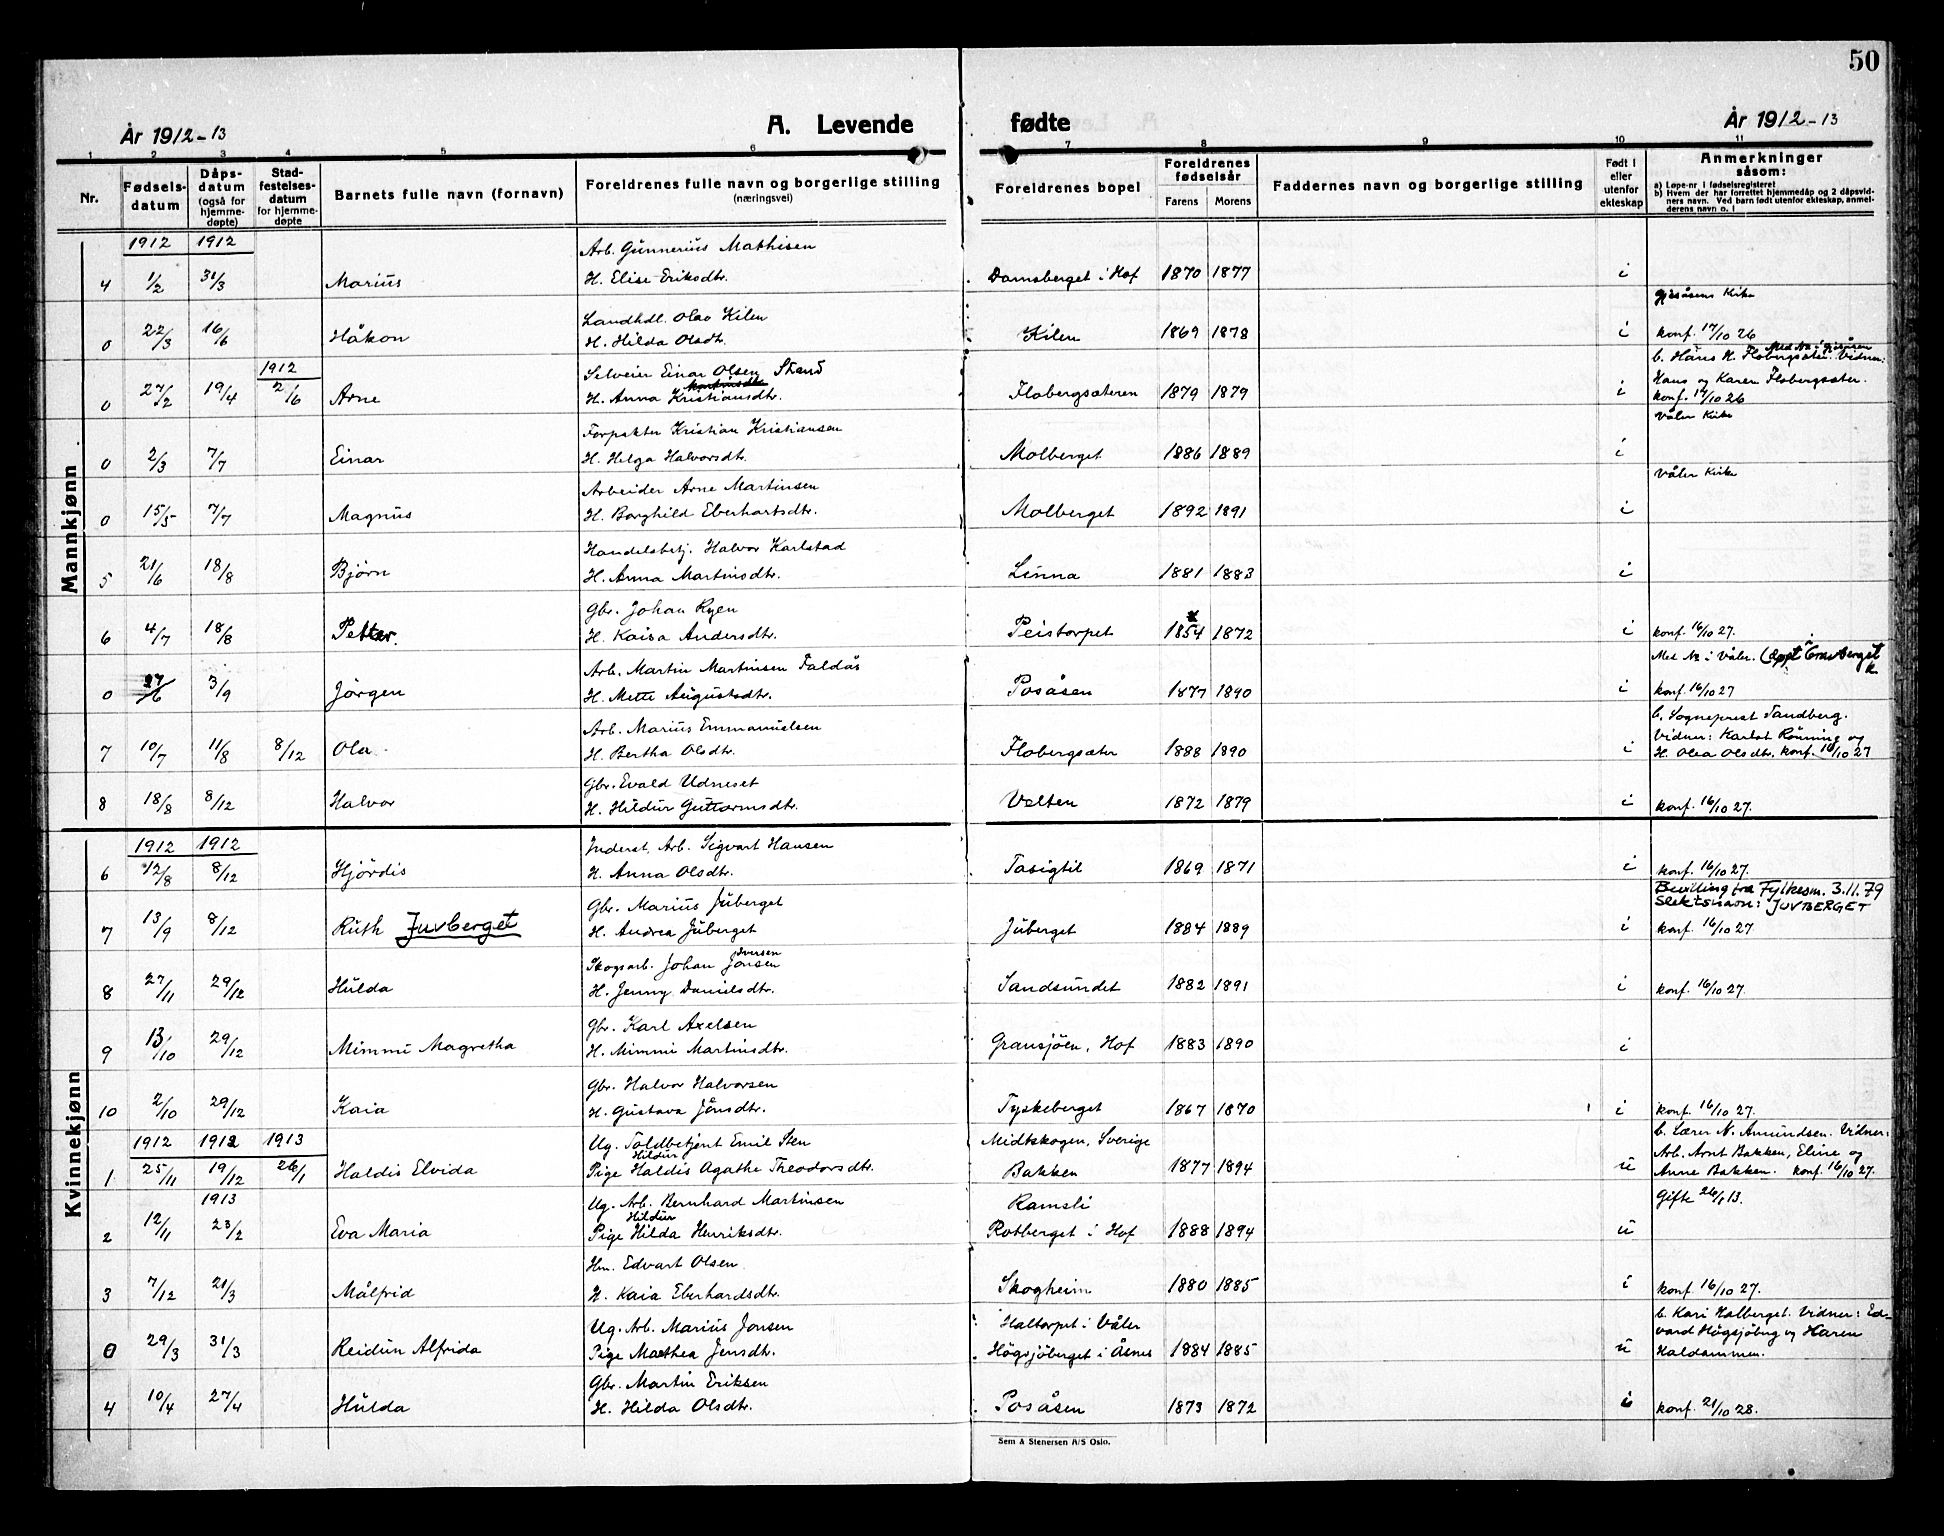 50
År 1912-13
A. Levende
fødte
År 1912-13
1 2 3 4 5 6 7 8 9 10 11
Nr.
Fødsels-
datum
Dåps-
datum
(også for
hjemme-
døpte)
Stad-
festelses-
datum
for hjemme-
døpte
Barnets fulle navn (fornavn)
Foreldrenes fulle navn og borgerlige stilling
(næringsvei)
Foreldrenes bopel
Foreldrenes
fødselsår
Farens Morens
Faddernes navn og borgerlige stilling
Født i
eller
utenfor
ekteskap
Anmerkninger
såsom:
a) Løpe-nr i fødselsregisteret
b) Hvem der har forrettet hjemmedåp og 2 dåpsvid-
ners navn. Ved barn født utenfor ekteskap, anmel-
derens navn o. l
Mannkjønn
1912 1912 Arb. Gunnerius Mathisen
4 1/2 31/3 Marius H. Elise Eriksdtr. Damsberget i Hof 1870 1877 i
Landhdl. Olav Kilen Gjesåsens Kirke
0 22/3 16/6 Håkon H. Hilda Olsdtr. Kilen 1869 1878 i konf. 17/10 26
1912 Selveier Einar Olsen Strand b. Hans K. Flobergsæter. Vidner:
0 27/2 19/4 2/6 Arne H. Anna Kristiansdtr. Flobergsæteren 1879 1879 i Hans og Karen Flobergsæter.
konf. 17/10 26
Forpakter Kristian Kristiansen Våler Kirke
0 2/3 7/7 Einar H. Helga Halvorsdtr. Molberget 1886 1889 i
Arbeider Arne Martinsen Våler Kirke
0 15/5 7/7 Magnus H. Borghild Eberhartsdtr. Molberget 1892 1891 i
Handelsbetj. Halvor Karlstad
5 21/6 18/8 Bjørn H. Anna Martinsdtr. Linna 1881 1883 i
Gbr. Johan Ryen
6 4/7 18/8 Petter. H. Kaisa Andersdtr. Peistorpet 1854 1872 i konf. 16/10 27.
Arb. Martin Martinsen Faldås Med No i Våler.
0 27/6 3/9 Jörgen H. Mette Augustsdtr. Posåsen 1877 1890 i konf. 16/10 27
Arb. Marius Emmanuelsen b. Sogneprest Sandberg.
Vidner: Karlot Rönning og
7 10/7 11/8 8/12 Ola H. Bertha Olsdtr. Flobergsæter 1888 1890 i H. Olea Olsdtr. konf. 16/10 27
Gbr. Evald Udneset
8 18/8 8/12 Halvor H. Hildur Guttormsdtr. Velten 1872 1879 i konf. 16/10 27.
Kvinnekjønn
1912 1912 Inderst, Arb. Sigvart Hansen
6 12/8 8/12 Hjördis H. Anna Olsdtr. Tasigtil 1869 1871 i konf. 16/10 27.
Gbr. Marius Juberget Bevilling fra Fylkesm. 3.11.79
Slektsnavn: JUVBERGET
7 13/9 8/12 Ruth Juvberget H. Andrea Juberget Juberget 1884 1889 i konf. 16/10 27
Iversen
Skogsarb. Johan Jonsen
8 27/11 29/12 Hulda H. Jenny Danielsdtr. Sandsundet 1882 1891 i konf. 16/10 27.
Gbr. Karl Axelsen
9 13/10 29/12 Mimmi Magretha H. Mimmi Martinsdtr. Gransjöen, Hof 1883 1890 i
Gbr. Halvor Halvorsen
10 2/10 29/12 Kaia H. Gustava Jönsdtr. Tyskeberget 1867 1870 i konf. 16/10 27.
1912 1912 1913 Ug. Toldbetjent Emil Sten Midtskogen, Sverige b. Lærer N. Amundsen. Vidner:
Hildur Arb. Arnt Bakken, Eline og
1 25/11 19/12 26/1 Haldis Elvida Pige Haldis Agathe Theodorsdtr. Bakken 1877 1894 u Anne Bakken. konf. 16/10 27.
1913 Ug. Arb. Bernhard Martinsen Ramsli Gifte 26/1 13.
Hildur
2 12/11 23/2 Eva Maria Pige Hilda Henriksdtr. Rotberget i Hof 1888 1894 u
Hm. Edvart Olsen
3 7/12 21/3 Målfrid H. Kaia Eberhardsdtr. Skogheim 1880 1885 i konf. 16/10 27.
Ug. Arb. Marius Jonsen Haltorpet i Våler b. Kari Halberget. Vidner: Ed-
vard Högsjöberg og Karen
0 29/3 31/3 Reidun Alfrida Pige Marthea Jensdtr. Högsjöberget i Åsnes 1884 1885 u Haldammen.
Gbr. Martin Eriksen
4 10/4 27/4 Hulda H. Hilda Olsdtr. Posåsen 1873 1872 i konf. 21/10 28.
Sem & Stenersen A/S Oslo.